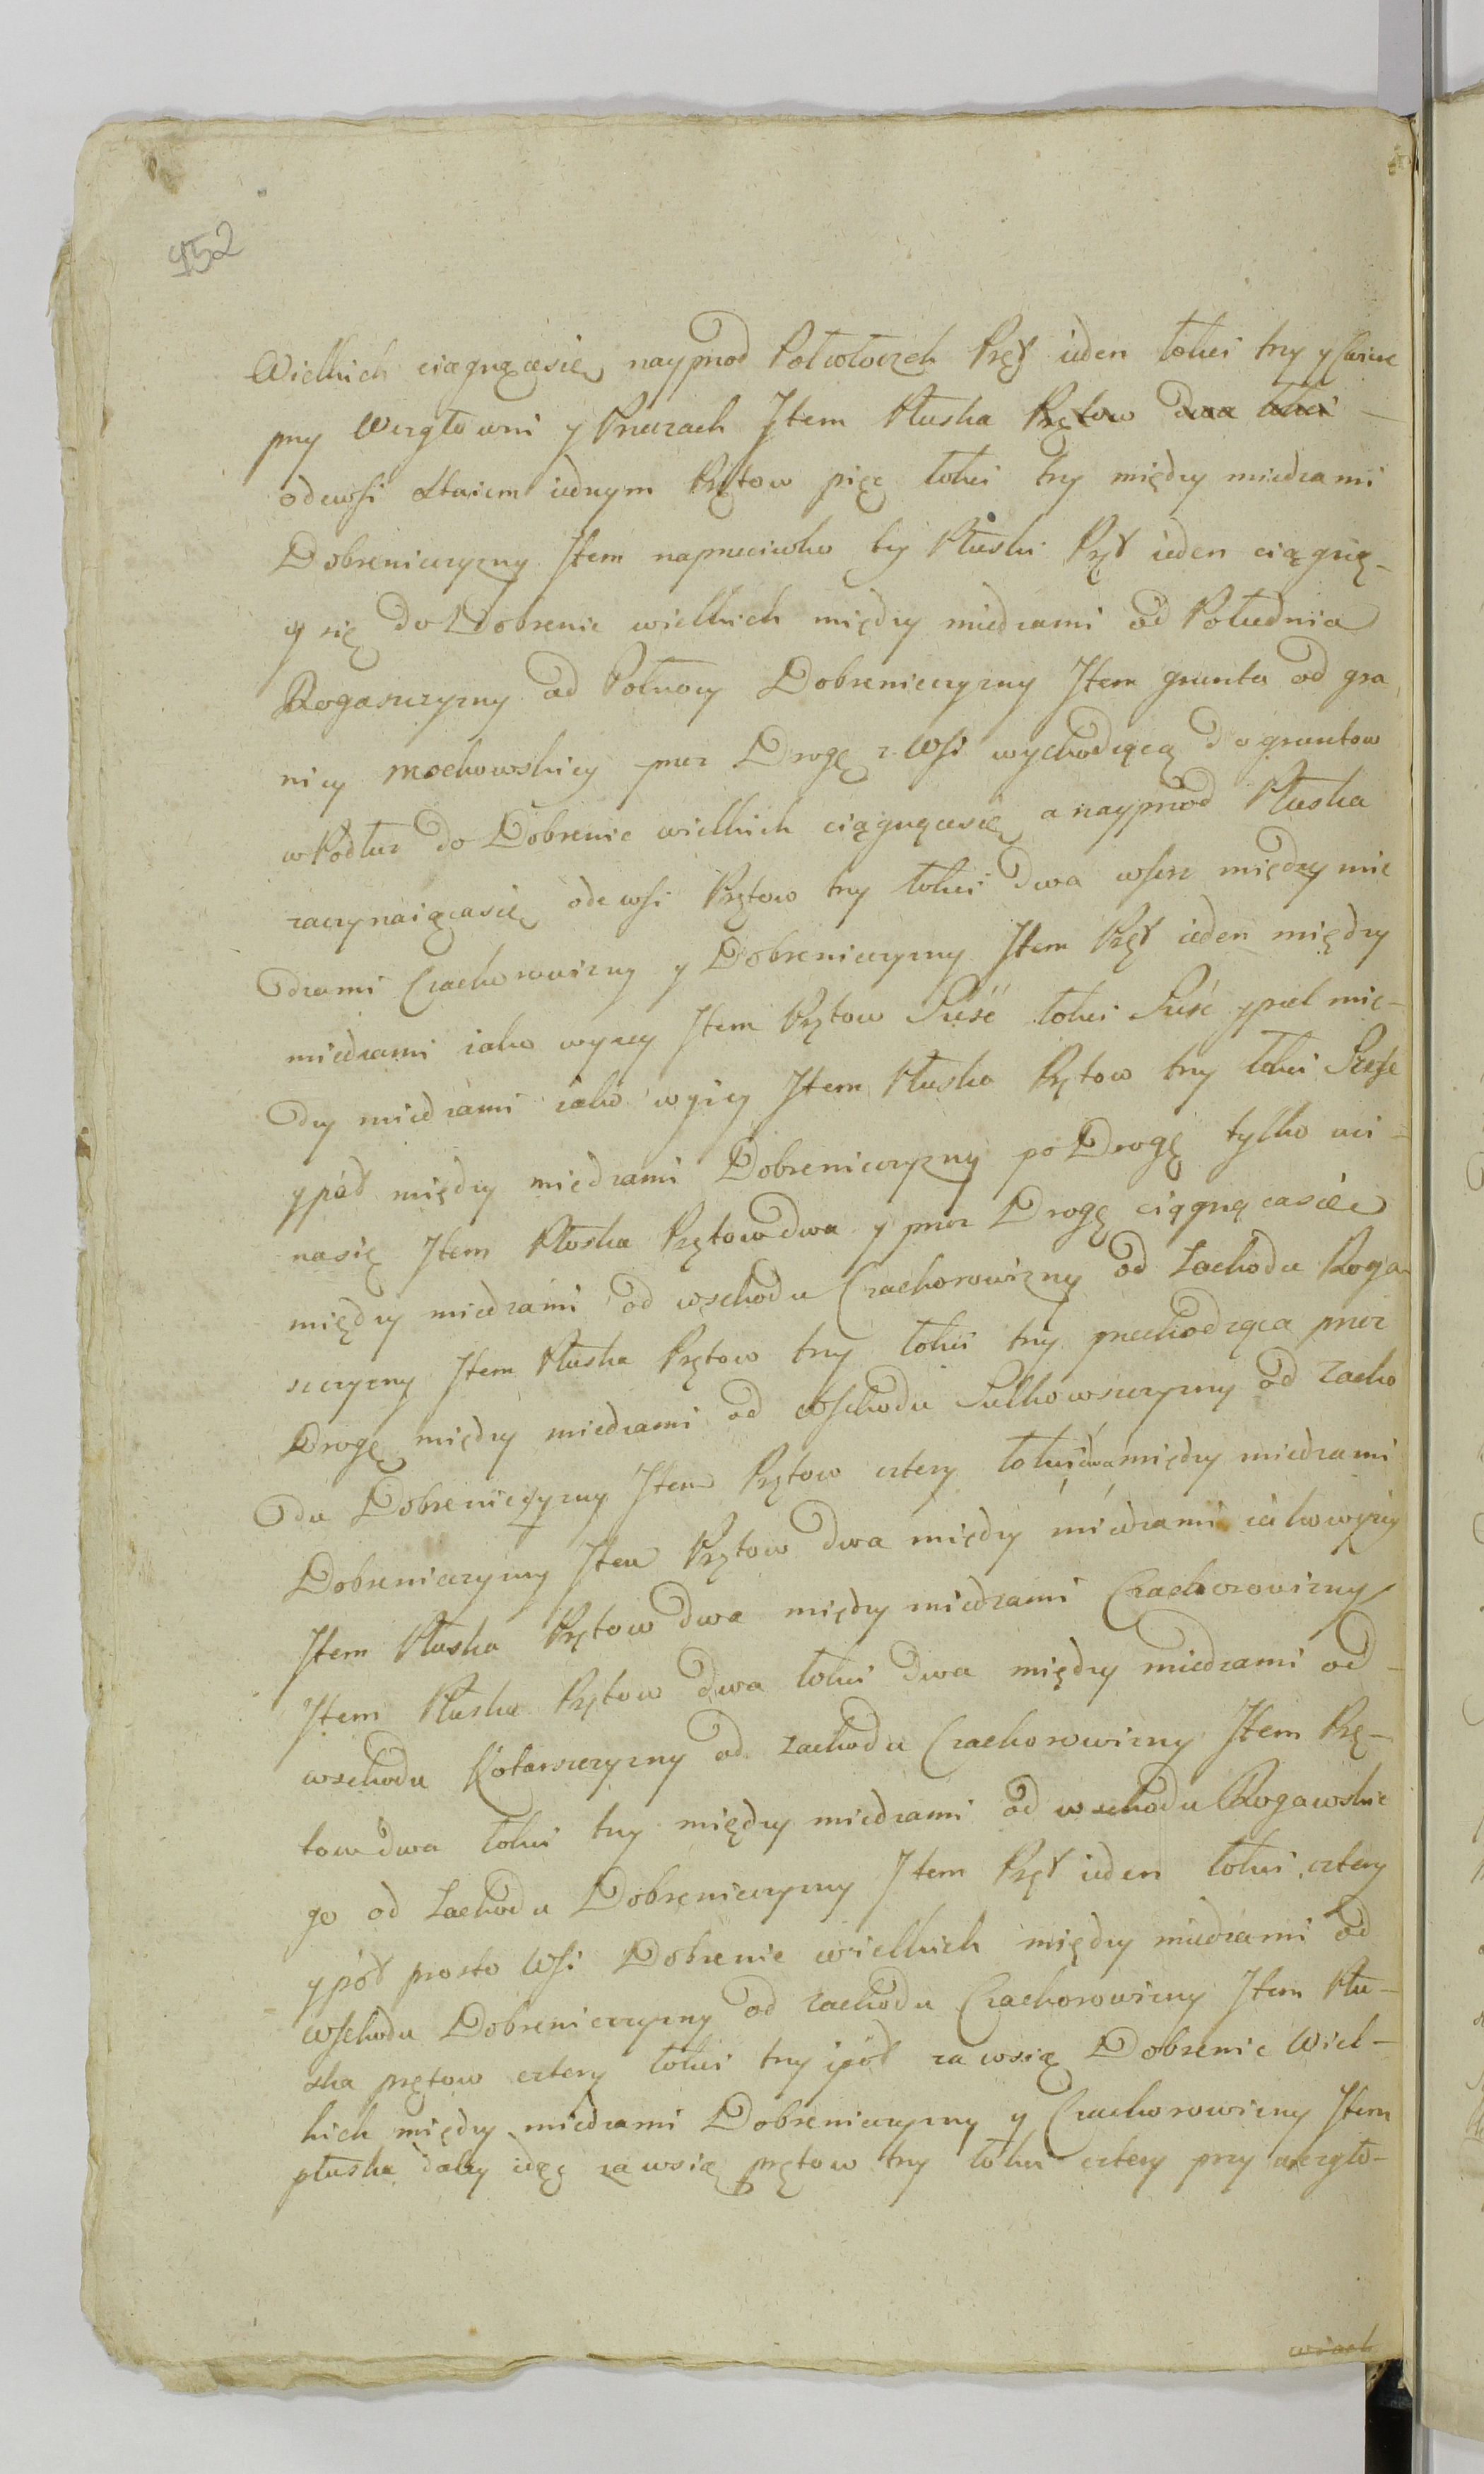 952
Wielkich ciągnącesię nayprzod Połwłoczek Pręt ieden łokci trzy y
przy Wezgłowni y Przeczach Item Płuska Prętow dwa łokci –
odewsi Staiem iednym Prętow pięc łokci trzy między miedzami
Dobreniczyzny Item naprzeciwko tey Płuski Pręt ieden ciągnię-
cy się do Dobrenic wielkich między miedzami od Południa
Rogaszczyzny od Połnocy Dobreniczyzny Item grunta od gra
nicy Mochowskiey przez Drogę z Wsi wychodzącą do gruntow
w Podłuz do Dobrenic wielkich ciągnącesię a nayprzod Płuska
zaczynaiącasię ode wsi Prętow trzy łokci dwa wszerz między mie
dzami Czachorowizny y Dobreniczyzny Item Pręt ieden między
miedzami iako wyzey Item Prętow Sześć łokci Sześć ypuł mię-
dzy miedzami iako wyzey Item Płuska Prętow trzy łokci Szesc
ypół między miedzami Dobreniczyzny po Drogę tylko uci-
nasię Item Płoska Prętow dwa y przez Drogę ciągnącasię
między miedzami od wschodu Czachorowizny od Zachodu Roga
szczyzny Item Płuska Prętow trzy łokci trzy przechodząca przez
Drogę między miedzami od Wschodu Sulkowszczyzny od Zacho
du Dobreniczyzny Item Prętow cztery łokci dwa między miedzami
Dobreniczyzny Item Prętow dwa między miedzami iakowyzey
Item Płuska Prętow dwa między miedzami Czachorowizny
Item Płuska Prętow dwa łokci dwa między miedzami od –
wschodu Kotarszczyzny od zachodu Czachorowizny Item Prę-
tow dwa łokci trzy między miedzami od wschodu Rogawskie
go od Zachodu Dobreniczyzny Item Pręt ieden łokci cztery
ypół prosto Wsi Dobrenic wielkich między miedzami od
wschodu Dobreniczyzny od zachodu Czachorowizny Item Płu-
ska prętow cztery łokci trzy ipół za wsią Dobrenic Wiel-
kich między miedzami Dobreniczyzny y Czachorowizny Item
płuska daley idąc za wsią prętow trzy łokci cztery przy wezgło-